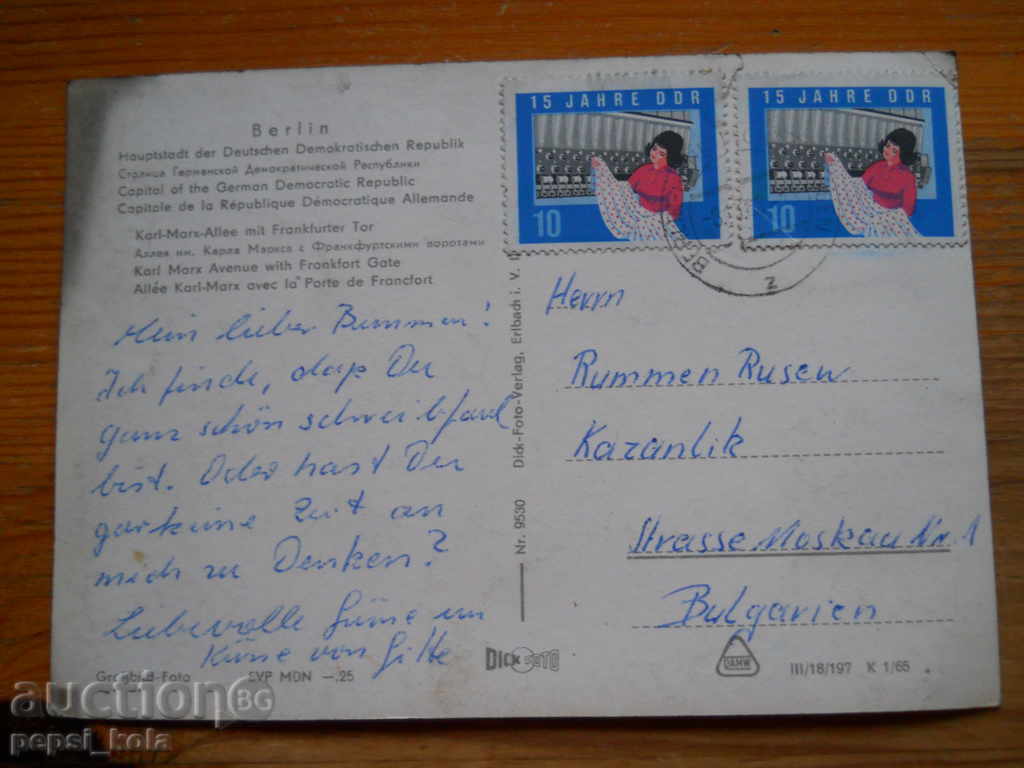 Berlin
Hauptstadt der Deutschen Demokratischen Republik
Столица Германской Демократической Республики
Capital of the German Democratic Republic
Capitale de la République Démocratique Allemande
Karl-Marx-Allee mit Frankfurter Tor
Аллея им. Карла Маркса с Франкфуртскими воротами
Karl Marx Avenue with Frankfort Gate
Allée Karl-Marx avec la Porte de Francfort
Mein lieber Rummen!
Ich finde, daß Du
ganz schön schreibfaul
bist. Oder hast Du
garkeine Zeit an
mich zu Denken?
Liebevolle Grüße un
Küsse von Gitte
Großbild-Foto EVP MDN -.25
Nr. 9530 Dick-Foto-Verlag, Erlbach i. V.
15 JAHRE DDR
10
15 JAHRE DDR
10
Herrn
Rummen Rusew
Kazanlik
Strasse Moskau Nr. 1
Bulgarien
DICK FOTO
III/18/197 K 1/65
auctionBG
pepsi_kola